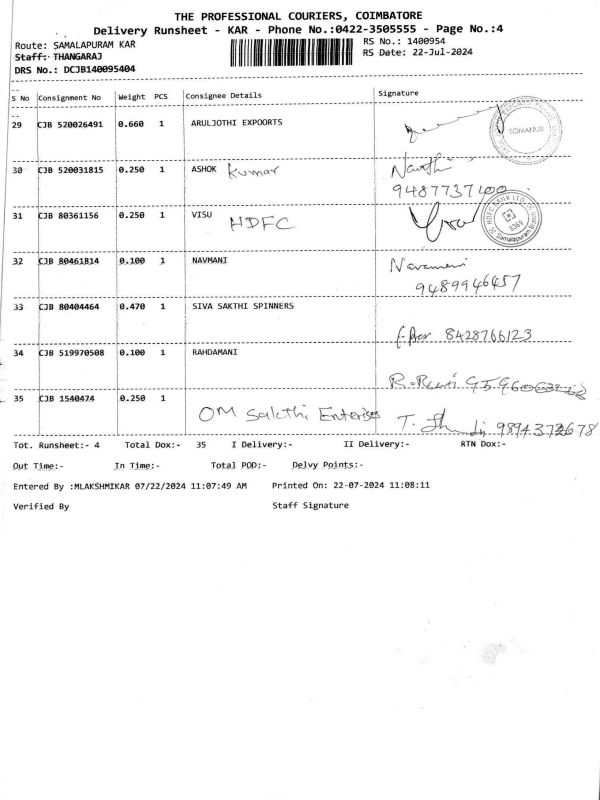 THE PROFESSIONAL COURIERS, COIMBATORE
Delivery Runsheet - KAR - Phone No.:0422-3505555 - Page No.:4
Route: SAMALAPURAM KAR
RS No.: 1400954
Staff: THANGARAJ
RS Date: 22-Jul-2024
DRS No.: DCJB140095404
S No Consignment No Weight PCS Consignee Details Signature
29 CJB 520026491 0.660 1 ARULJOTHI EXPOORTS
SOMANUR
30 CJB 520031815 0.250 1 ASHOK Kumar
9487737100
31 CJB 80361156 0.250 1 VISU HDFC
HDFC BANK LTD.
Samalapuram
32 CJB 80461814 0.100 1 NAVMANI Navamani
9489946457
33 CJB 80404464 0.470 1 SIVA SAKTHI SPINNERS
8428766123
34 CJB 519970508 0.100 1 RAHDAMANI
35 CJB 1540474 0.250 1 OM Sakthi Enterises
Tot. Runsheet:- 4 Total Dox:- 35 I Delivery:- II Delivery:- RTN Dox:-
Out Time:- In Time:- Total POD:- Delvy Points:-
Entered By :MLAKSHMIKAR 07/22/2024 11:07:49 AM Printed On: 22-07-2024 11:08:11
Verified By Staff Signature